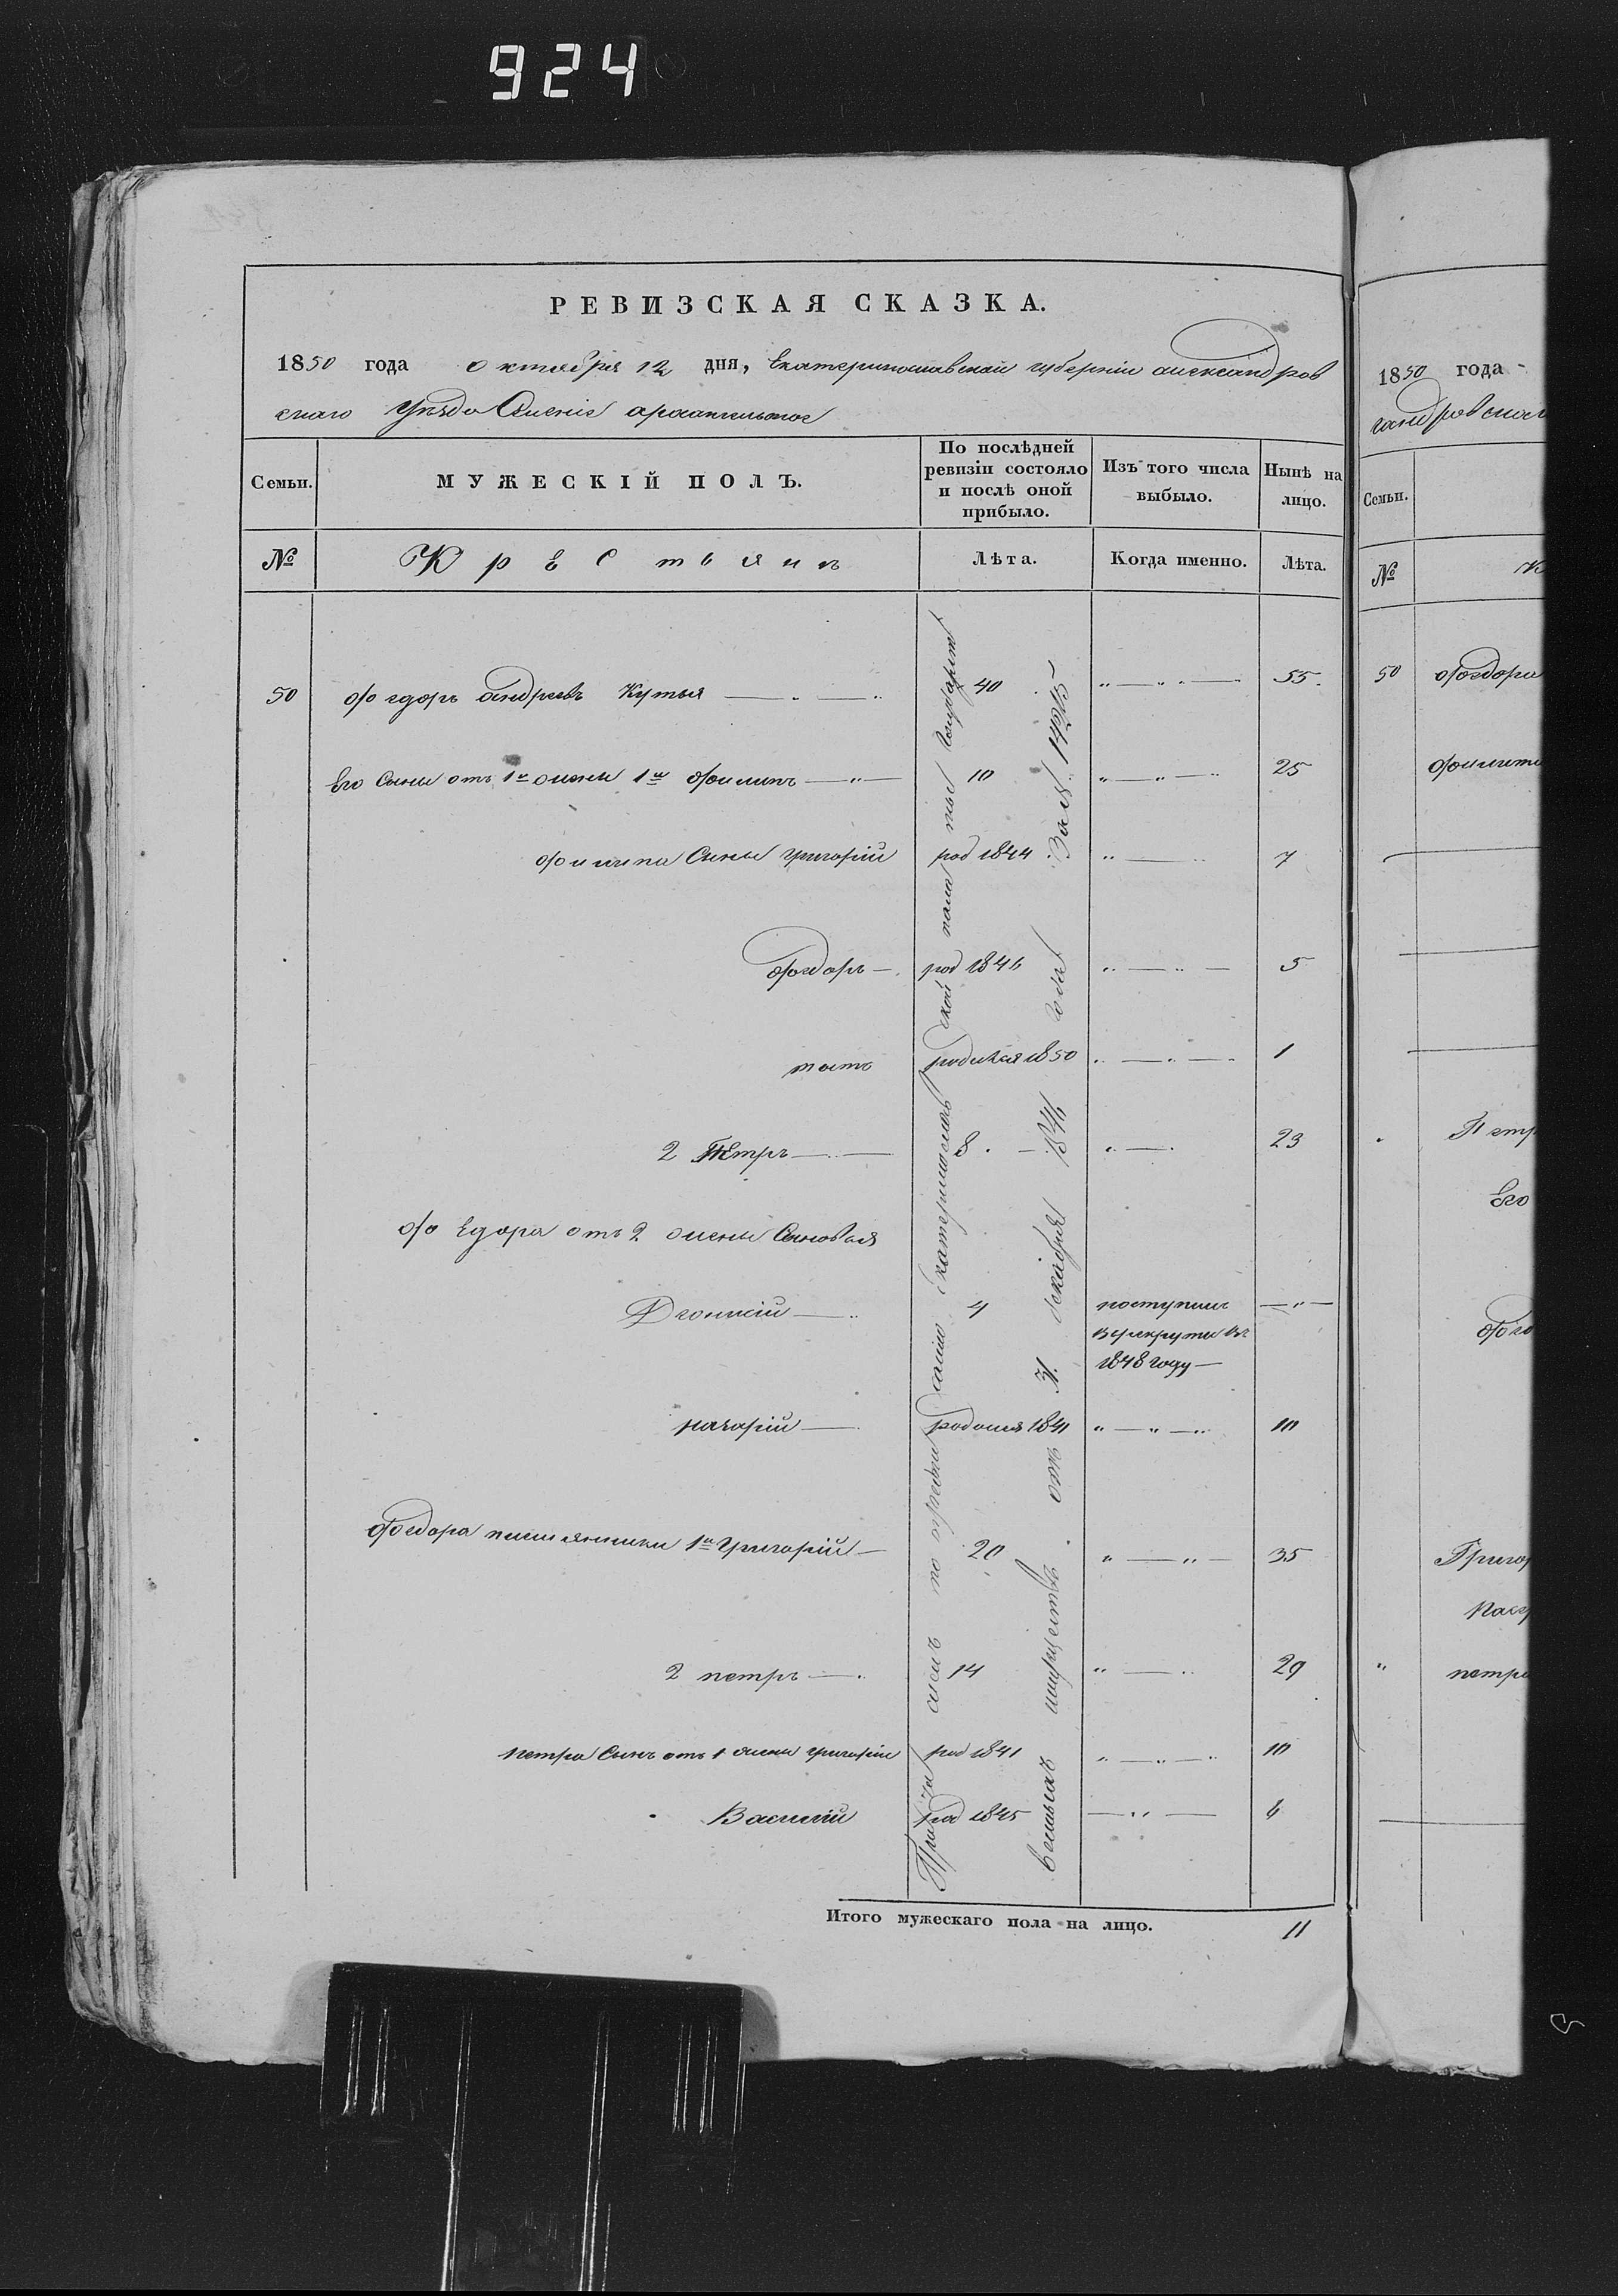 924
РЕВИЗСКАЯ СКАЗКА.
1850 года октября 12 дня, Екатеринославской губернии александров
скаго уѣзда Селеніе
Семьи. МУЖЕСКІЙ ПОЛЪ. По послѣдней ревизіи состояло и послѣ оной прибыло. Изъ того числа выбыло. Нынѣ на лицо.
№ Крестьянъ Лѣта. Когда именно. Лѣта.
50 Фѳедоръ андреевъ Кутья 40 55.
Его Сыны отъ 1й жены 1й Филипъ 10 25
Филипа Сыны григорій род 1844 7
Фѳедоръ род 1846 5
родился 1850 1
2 Петръ 8 23
Фѳедора отъ 2 жены Сыновья
4 поступилъ
в рекруты въ
1848 году
родился 1841 10
Фѳедора племянники 1й Григорій 20 35
2 петръ 14 29
петра Сынъ отъ 1 жены григорій род 1841 10
Василій род 1845 6
Причисленъ по предписанію Екатеринославской палаты Государст
венныхъ имуществъ отъ 31 декабря 1846 года За №. 14215
Итого мужескаго пола на лицо. 11
1850 года
Семьи.
№
50 Фѳедора